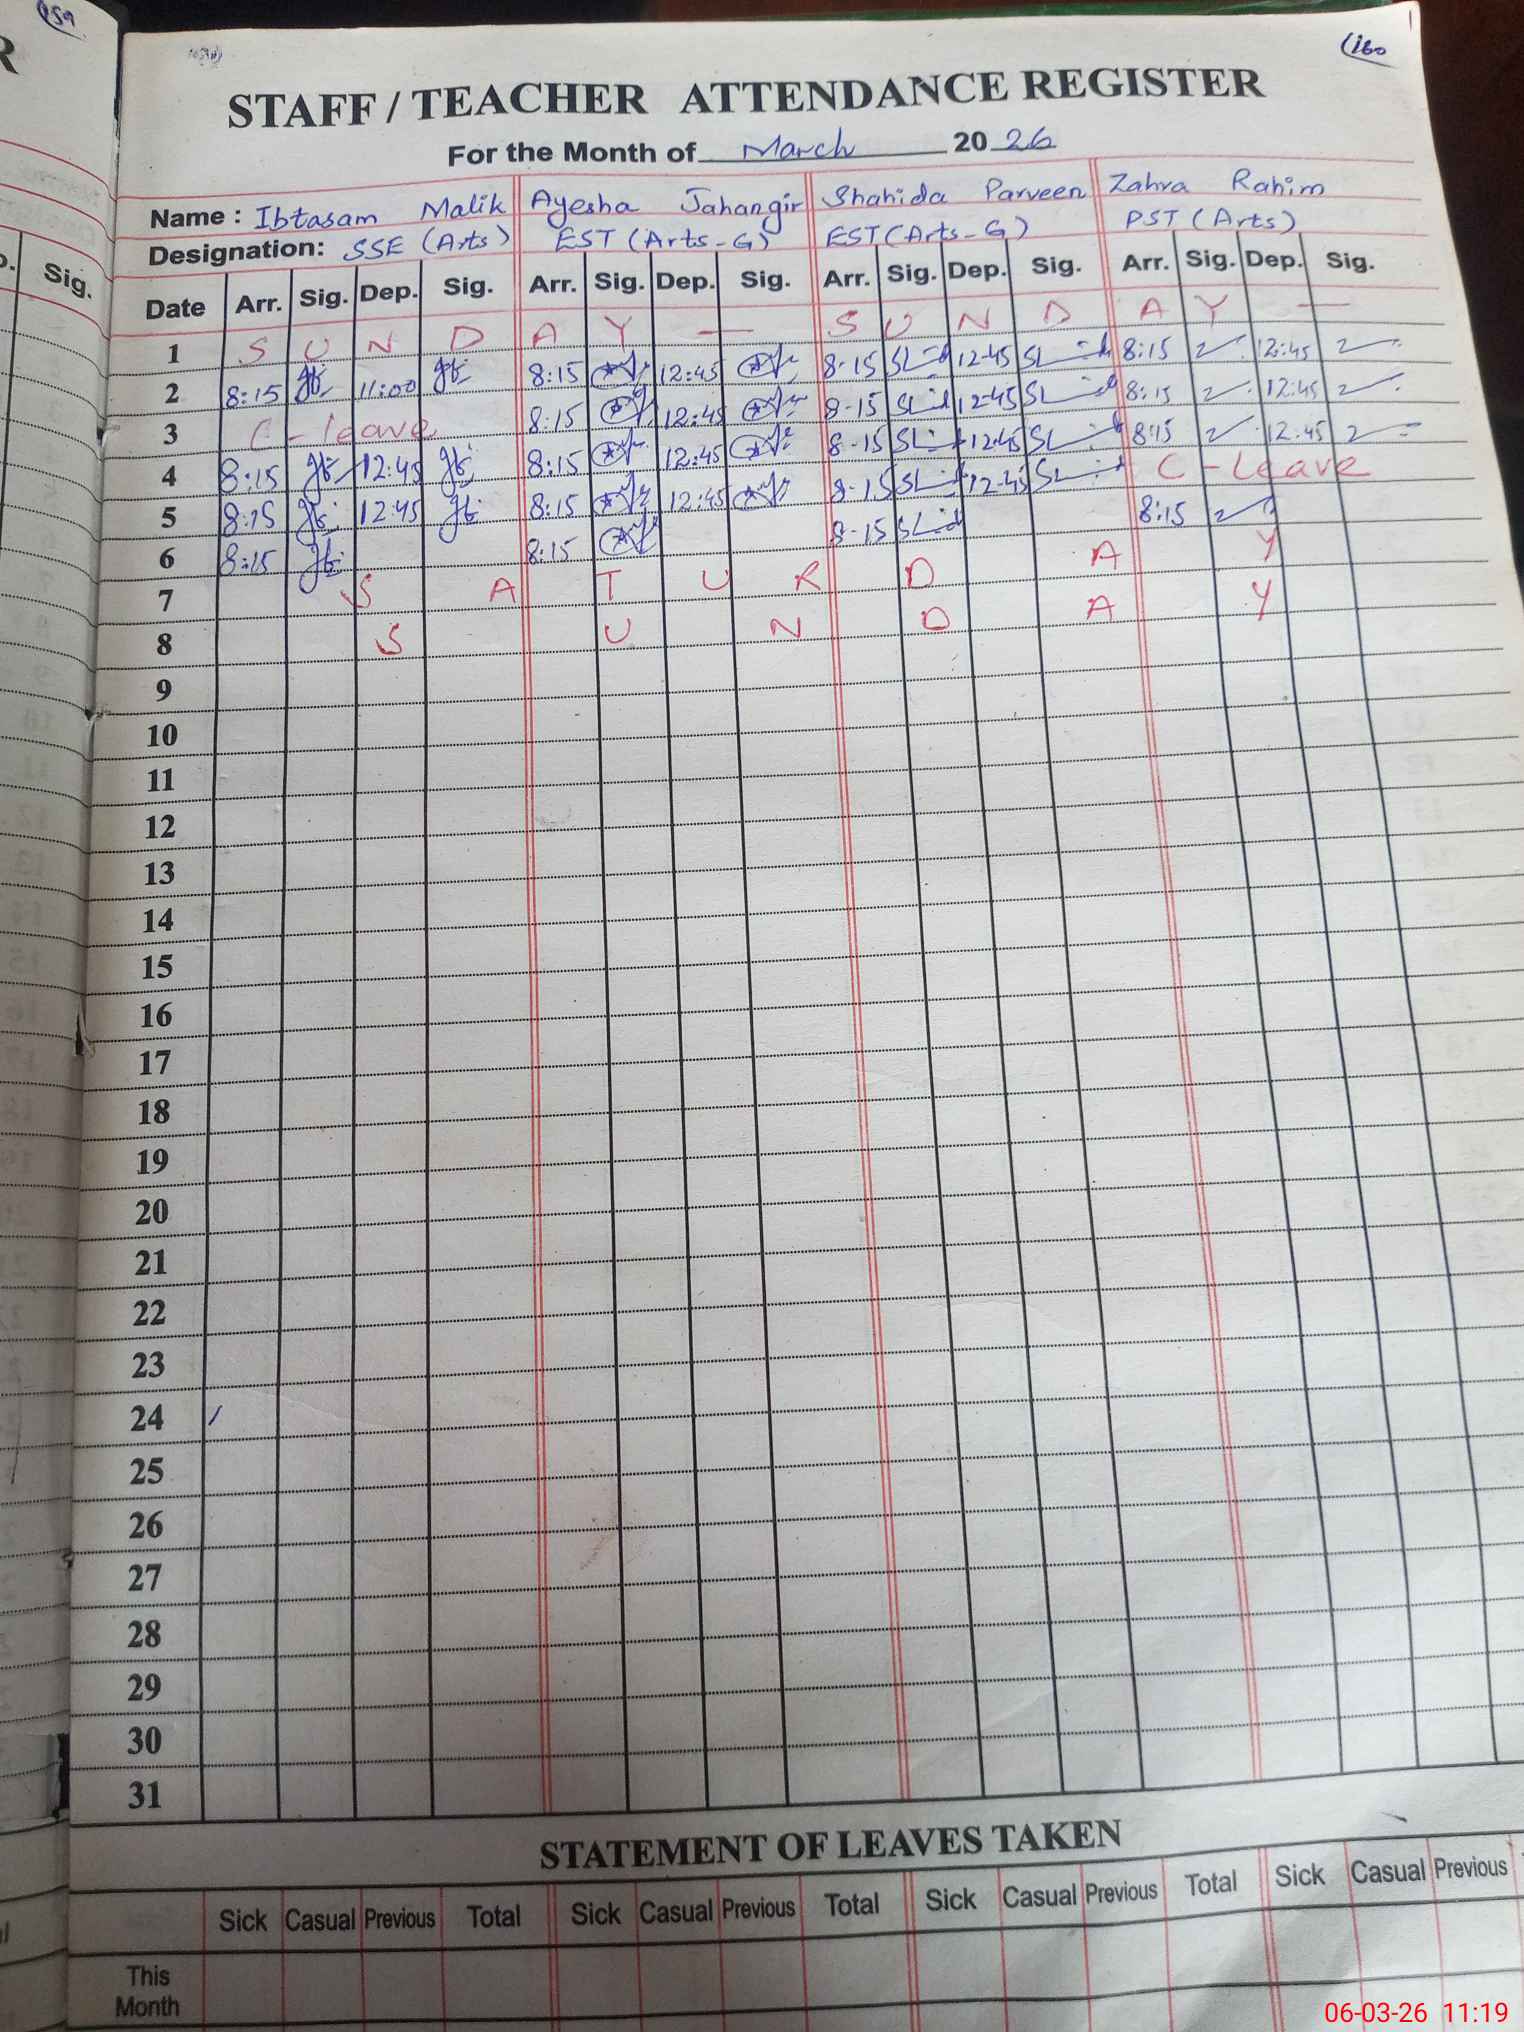 159
R
Sig.
160
STAFF / TEACHER ATTENDANCE REGISTER
For the Month of March 2026
Name : Ibtasam Malik Ayesha Jahangir Shahida Parveen Zahra Rahim
Designation: SSE (Arts) EST (Arts-G) EST (Arts-G) PST (Arts)
Date Arr. Sig. Dep. Sig. Arr. Sig. Dep. Sig. Arr. Sig. Dep. Sig. Arr. Sig. Dep. Sig.
1 S U N D A Y — S U N D A Y —
2 8:15 11:00 8:15 12:45 8-15 12-45 8:15 12:45
3 C-leave 8:15 12:45 8-15 12-45 8:15 12:45
4 8:15 12:45 8:15 12:45 8-15 12-45 8:15 12:45
5 8:15 12:45 8:15 12:45 8-15 12-45 C-Leave
6 8:15 8:15 8-15 8:15
7 S A T U R D A Y
8 S U N D A Y
9
10
11
12
13
14
15
16
17
18
19
20
21
22
23
24
25
26
27
28
29
30
31
STATEMENT OF LEAVES TAKEN
Sick Casual Previous Total Sick Casual Previous Total Sick Casual Previous Total Sick Casual Previous
This
Month
06-03-26 11:19